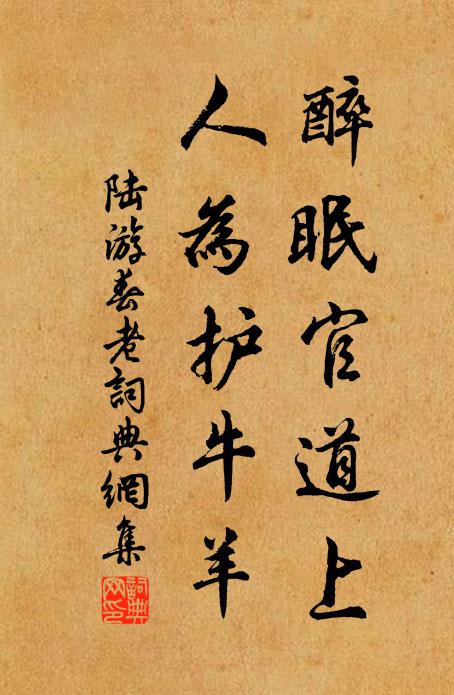 醉眠官道上
人為护牛羊
陆游春老詞典網集
詞典網印